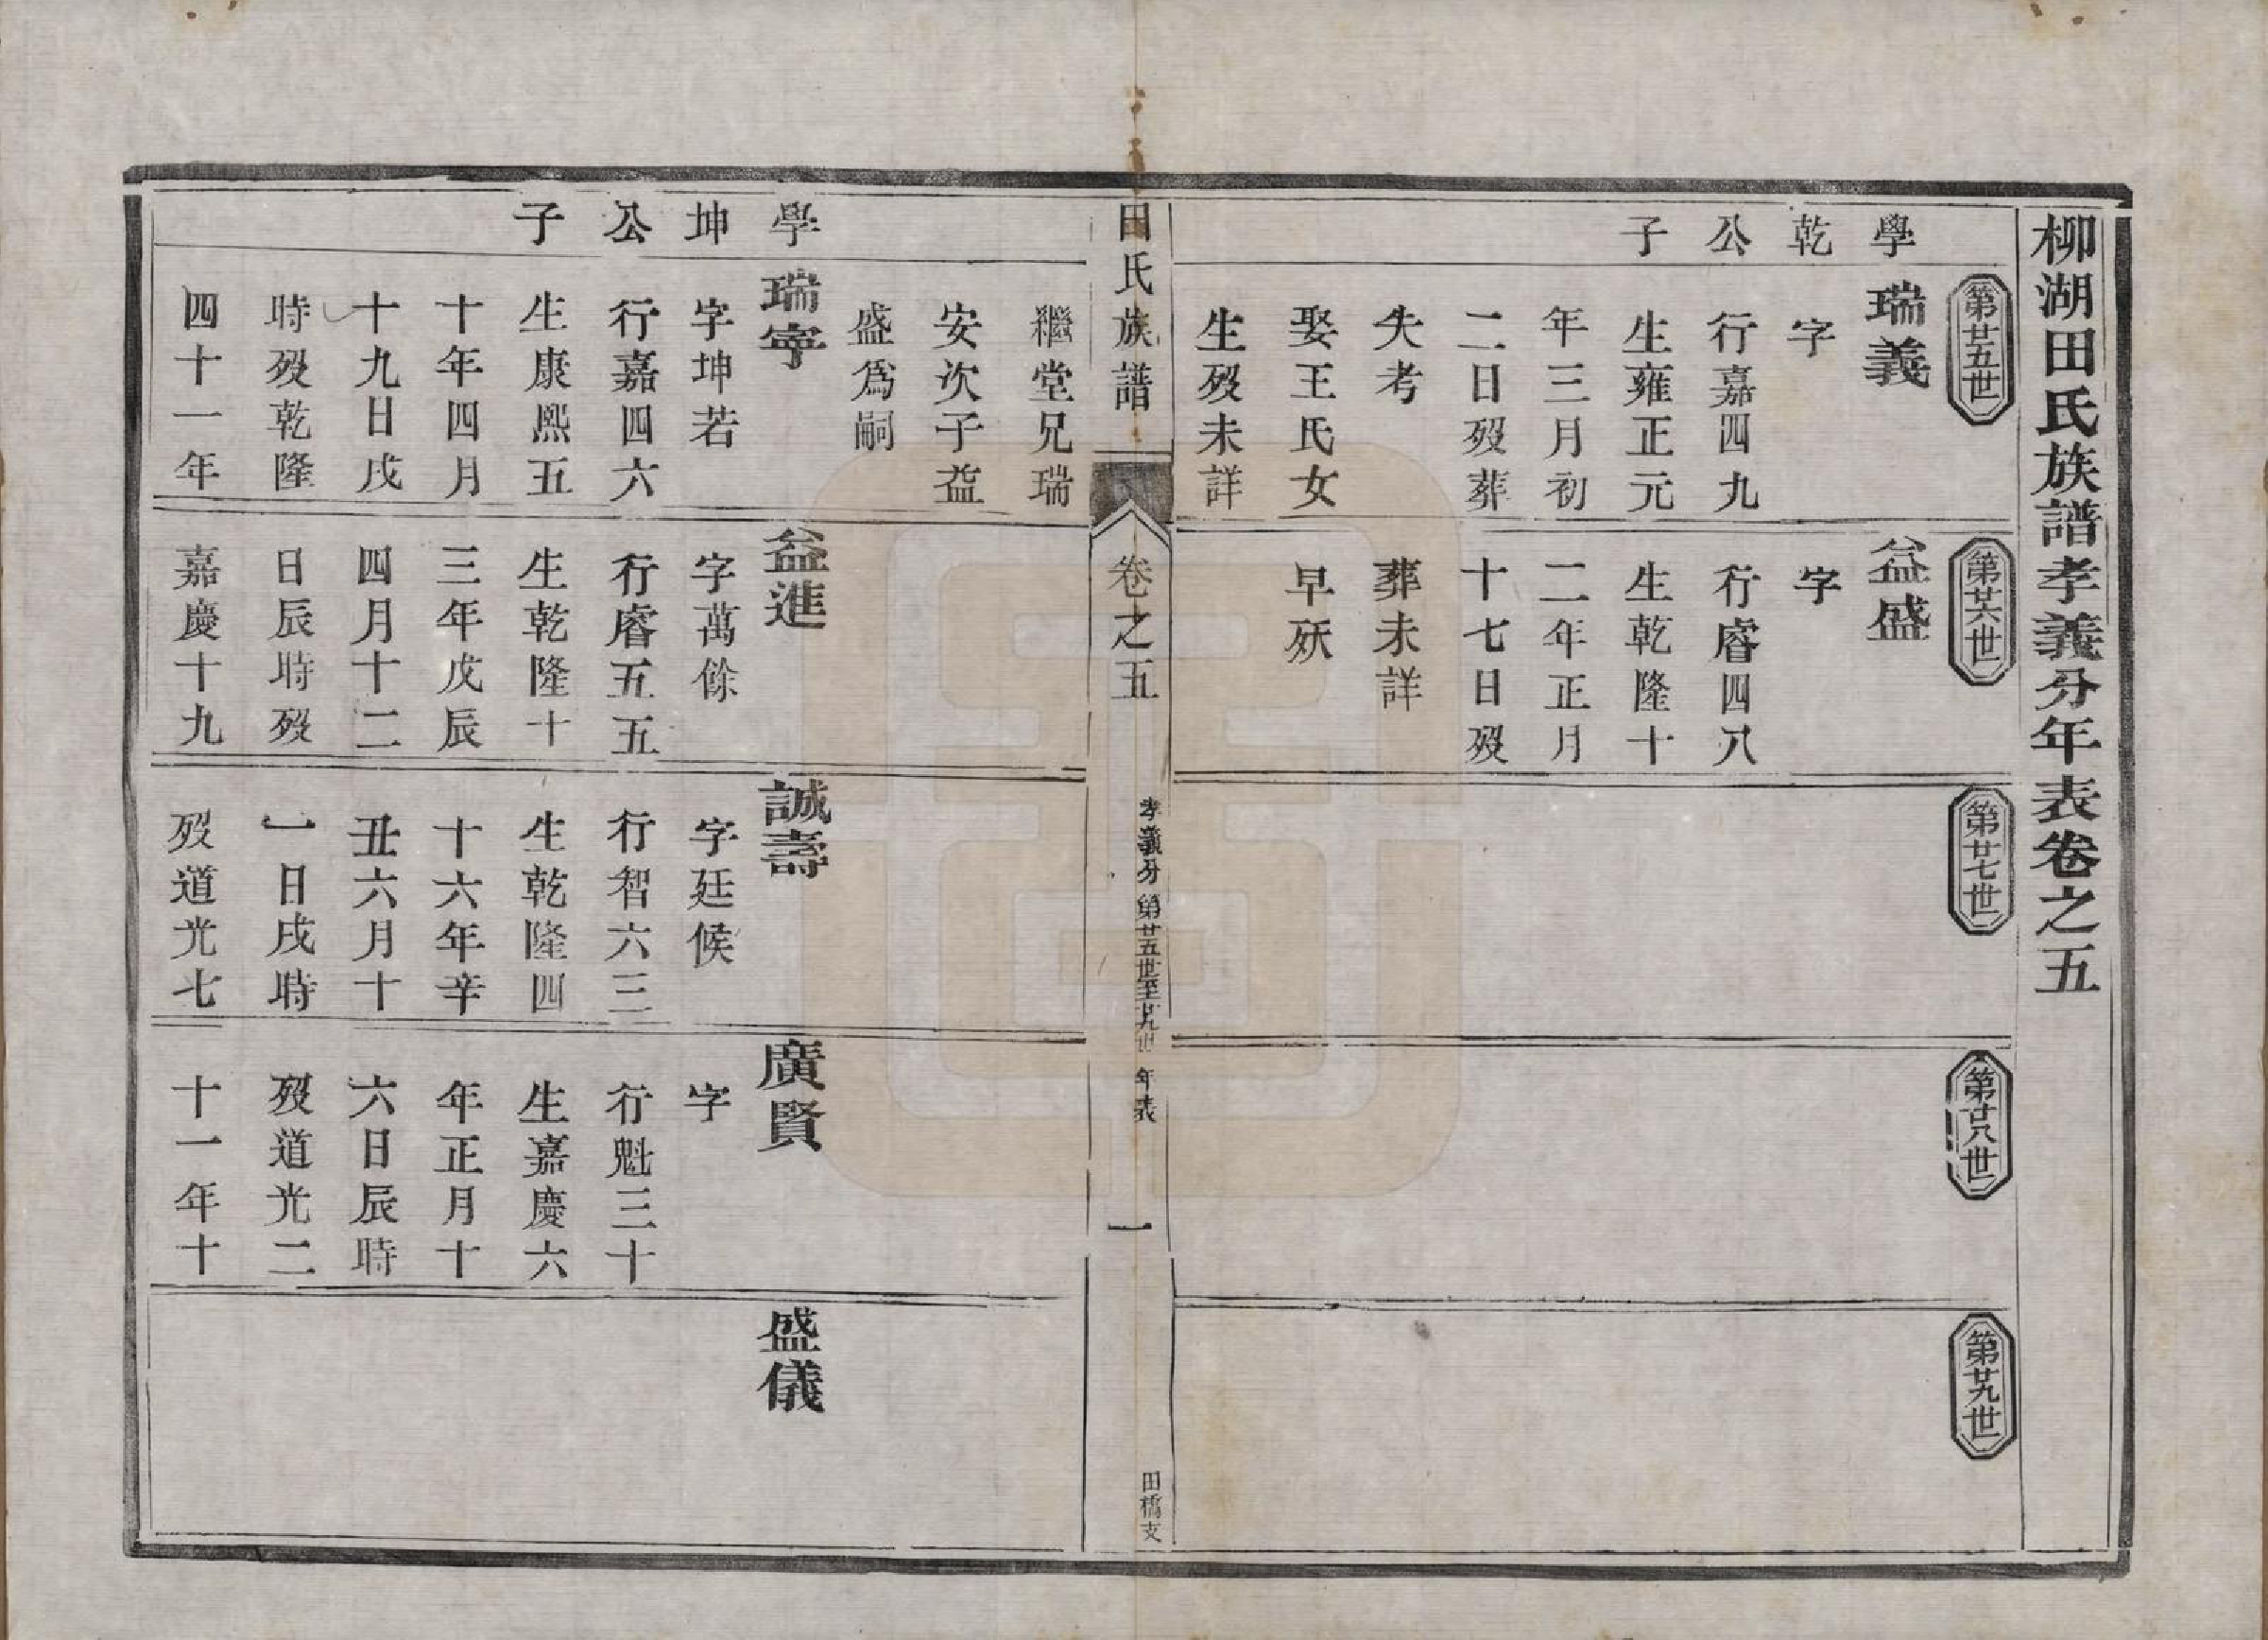 柳湖田氏族譜孝義分年表卷之五
第廿五世
學乾公子
瑞義
字
行嘉四九
生雍正元
年三月初
二日歿葬
失考
娶王氏女
生歿未詳
第廿六世
益盛
字
行睿四八
生乾隆十
二年正月
十七日歿
葬未詳
早殀
第廿七世
第廿八世
第廿九世
田氏族譜
卷之五
孝義分第廿五世至廿九世年表
一
田橋支
繼堂兄瑞
安次子益
盛爲嗣
學坤公子
瑞寧
字坤若
行嘉四六
生康熙五
十年四月
十九日戌
時歿乾隆
四十一年
益進
字萬餘
行睿五五
生乾隆十
三年戊辰
四月十二
日辰時歿
嘉慶十九
誠壽
字廷候
行智六三
生乾隆四
十六年辛
丑六月十
一日戌時
歿道光七
廣賢
字
行魁三十
生嘉慶六
年正月十
六日辰時
歿道光二
十一年十
盛儀